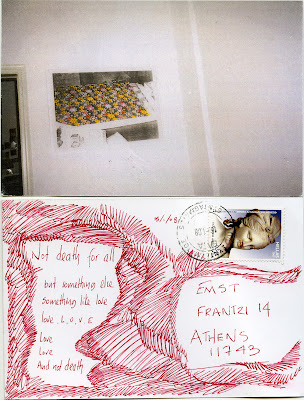 Not death for all
but something else
something like love
love, L, O, V, E
Love
Love
And not death
EMST
FRANTZI 14
ATHENS
11743